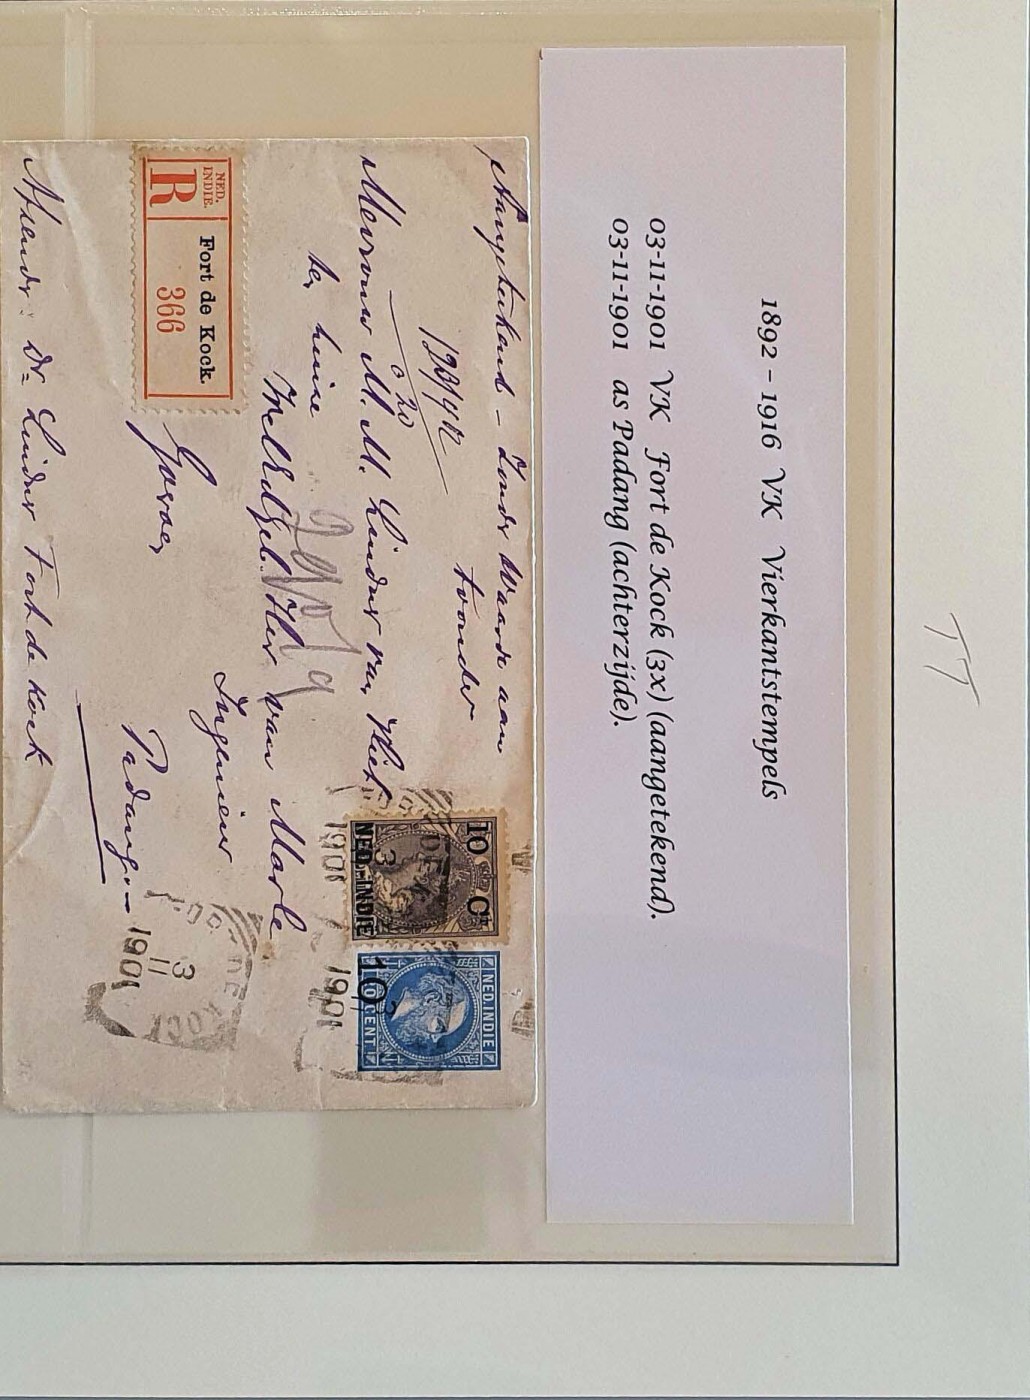 TT
1892 – 1916 VK Vierkantstempels
03-11-1901 VK Fort de Kock (3x) (aangetekend).
03-11-1901 as Padang (achterzijde).
Aangetekend – Zonder Waarde aan
Mevrouw M. M. Linder van Vliet
ten huize
WelEdGeb. Heer van Marle
Ingenieur
Padang
Afzender: Dr. Linder Fort de Kock
NED. INDIE.
R
Fort de Kock.
366
10 Ct
NED.-INDIE
NED. INDIE
10
10 CENT
3
1901
3
1901
DE KOCK
3
11
1901